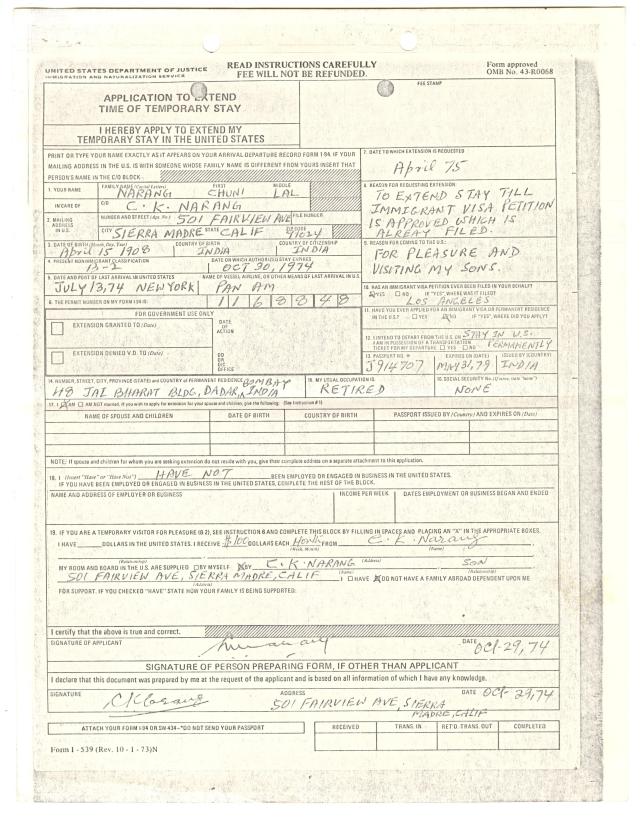 UNITED STATES DEPARTMENT OF JUSTICE
IMMIGRATION AND NATURALIZATION SERVICE
READ INSTRUCTIONS CAREFULLY
FEE WILL NOT BE REFUNDED.
Form approved
OMB No. 43-R0068
FEE STAMP
APPLICATION TO EXTEND
TIME OF TEMPORARY STAY
I HEREBY APPLY TO EXTEND MY
TEMPORARY STAY IN THE UNITED STATES
PRINT OR TYPE YOUR NAME EXACTLY AS IT APPEARS ON YOUR ARRIVAL DEPARTURE RECORD FORM I-94. IF YOUR
MAILING ADDRESS IN THE U.S. IS WITH SOMEONE WHOSE FAMILY NAME IS DIFFERENT FROM YOURS INSERT THAT
PERSON'S NAME IN THE C/O BLOCK
7. DATE TO WHICH EXTENSION IS REQUESTED
April 75
1. YOUR NAME FAMILY NAME (Capital Letters) FIRST MIDDLE
NARANG CHUNI LAL
IN CARE OF C/O C. K. NARANG
2. MAILING ADDRESS IN U.S. NUMBER AND STREET (Apt. No.) 501 FAIRVIEW AVE FILE NUMBER
CITY SIERRA MADRE STATE CALIF ZIP CODE 91024
8. REASON FOR REQUESTING EXTENSION
TO EXTEND STAY TILL
IMMIGRANT VISA PETITION
IS APPROVED WHICH IS
ALREAY FILED.
3. DATE OF BIRTH (Month, Day, Year) COUNTRY OF BIRTH COUNTRY OF CITIZENSHIP
April 15 1908 INDIA INDIA
4. PRESENT NONIMMIGRANT CLASSIFICATION DATE ON WHICH AUTHORIZED STAY EXPIRES
B-2 OCT 30, 1974
9. REASON FOR COMING TO THE U.S.:
FOR PLEASURE AND
VISITING MY SONS.
5. DATE AND PORT OF LAST ARRIVAL IN UNITED STATES NAME OF VESSEL, AIRLINE, OR OTHER MEANS OF LAST ARRIVAL IN U.S.
JULY 13, 74 NEWYORK PAN AM
6. THE PERMIT NUMBER ON MY FORM I-94 IS: 1 1 6 8 8 4 8
10. HAS AN IMMIGRANT VISA PETITION EVER BEEN FILED IN YOUR BEHALF?
YES NO IF "YES", WHERE WAS IT FILED?
LOS ANGELES
11. HAVE YOU EVER APPLIED FOR AN IMMIGRANT VISA OR PERMANENT RESIDENCE
IN THE U.S.? YES NO IF "YES", WHERE DID YOU APPLY?
FOR GOVERNMENT USE ONLY
EXTENSION GRANTED TO (Date)
DATE OF ACTION
EXTENSION DENIED V.D. TO (Date)
DD OR DIS OFFICE
12. I INTEND TO DEPART FROM THE U.S. ON STAY IN U.S.
I AM IN POSSESSION OF A TRANSPORTATION PERMANENTLY
TICKET FOR MY DEPARTURE YES NO
13. PASSPORT NO. EXPIRES ON (DATE) ISSUED BY (COUNTRY)
J914707 MAY 31, 79 INDIA
14. NUMBER, STREET, CITY, PROVINCE (STATE) and COUNTRY OF PERMANENT RESIDENCE BOMBAY
48 JAI BHARAT BLDG, DADAR, INDIA
15. MY USUAL OCCUPATION IS
RETIRED
16. SOCIAL SECURITY No. (If none, state "none")
NONE
17. I AM AM NOT married. If you wish to apply for extension for your spouse and children, give the following: (See Instruction #1)
NAME OF SPOUSE AND CHILDREN DATE OF BIRTH COUNTRY OF BIRTH PASSPORT ISSUED BY (Country) AND EXPIRES ON (Date)
NOTE: If spouse and children for whom you are seeking extension do not reside with you, give their complete address on a separate attachment to this application.
18. I (Insert "Have" or "Have Not") HAVE NOT BEEN EMPLOYED OR ENGAGED IN BUSINESS IN THE UNITED STATES.
IF YOU HAVE BEEN EMPLOYED OR ENGAGED IN BUSINESS IN THE UNITED STATES, COMPLETE THE REST OF THE BLOCK.
NAME AND ADDRESS OF EMPLOYER OR BUSINESS INCOME PER WEEK DATES EMPLOYMENT OR BUSINESS BEGAN AND ENDED
19. IF YOU ARE A TEMPORARY VISITOR FOR PLEASURE (B-2), SEE INSTRUCTION 6 AND COMPLETE THIS BLOCK BY FILLING IN SPACES AND PLACING AN "X" IN THE APPROPRIATE BOXES.
I HAVE DOLLARS IN THE UNITED STATES. I RECEIVE $100 DOLLARS EACH FROM C. K. Narang
(Week, Month) (Name)
(Relationship) (Address)
MY ROOM AND BOARD IN THE U.S. ARE SUPPLIED BY MYSELF BY C. K. NARANG SON
(Name) (Relationship)
501 FAIRVIEW AVE, SIERRA MADRE, CALIF I HAVE DO NOT HAVE A FAMILY ABROAD DEPENDENT UPON ME
(Address)
FOR SUPPORT. IF YOU CHECKED "HAVE" STATE HOW YOUR FAMILY IS BEING SUPPORTED:
I certify that the above is true and correct.
SIGNATURE OF APPLICANT
DATE Oct-29, 74
SIGNATURE OF PERSON PREPARING FORM, IF OTHER THAN APPLICANT
I declare that this document was prepared by me at the request of the applicant and is based on all information of which I have any knowledge.
SIGNATURE CKNarang ADDRESS DATE Oct-29, 74
501 FAIRVIEW AVE, SIERRA
MADRE, CALIF
ATTACH YOUR FORM I-94 OR SW-434-DO NOT SEND YOUR PASSPORT
RECEIVED TRANS IN RET'D. TRANS. OUT COMPLETED
Form I-539 (Rev. 10-1-73)N